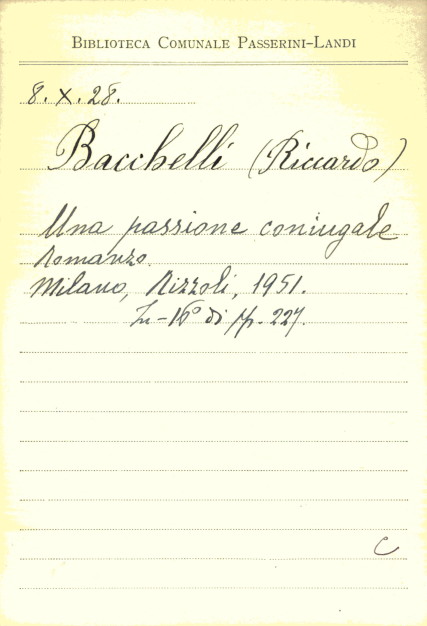 BIBLIOTECA COMUNALE PASSERINI-LANDI
8. X. 28.
Bacchelli (Riccardo)
Una passione coniugale
Romanzo.
Milano, Rizzoli, 1951.
In-16° di pp. 227.
C